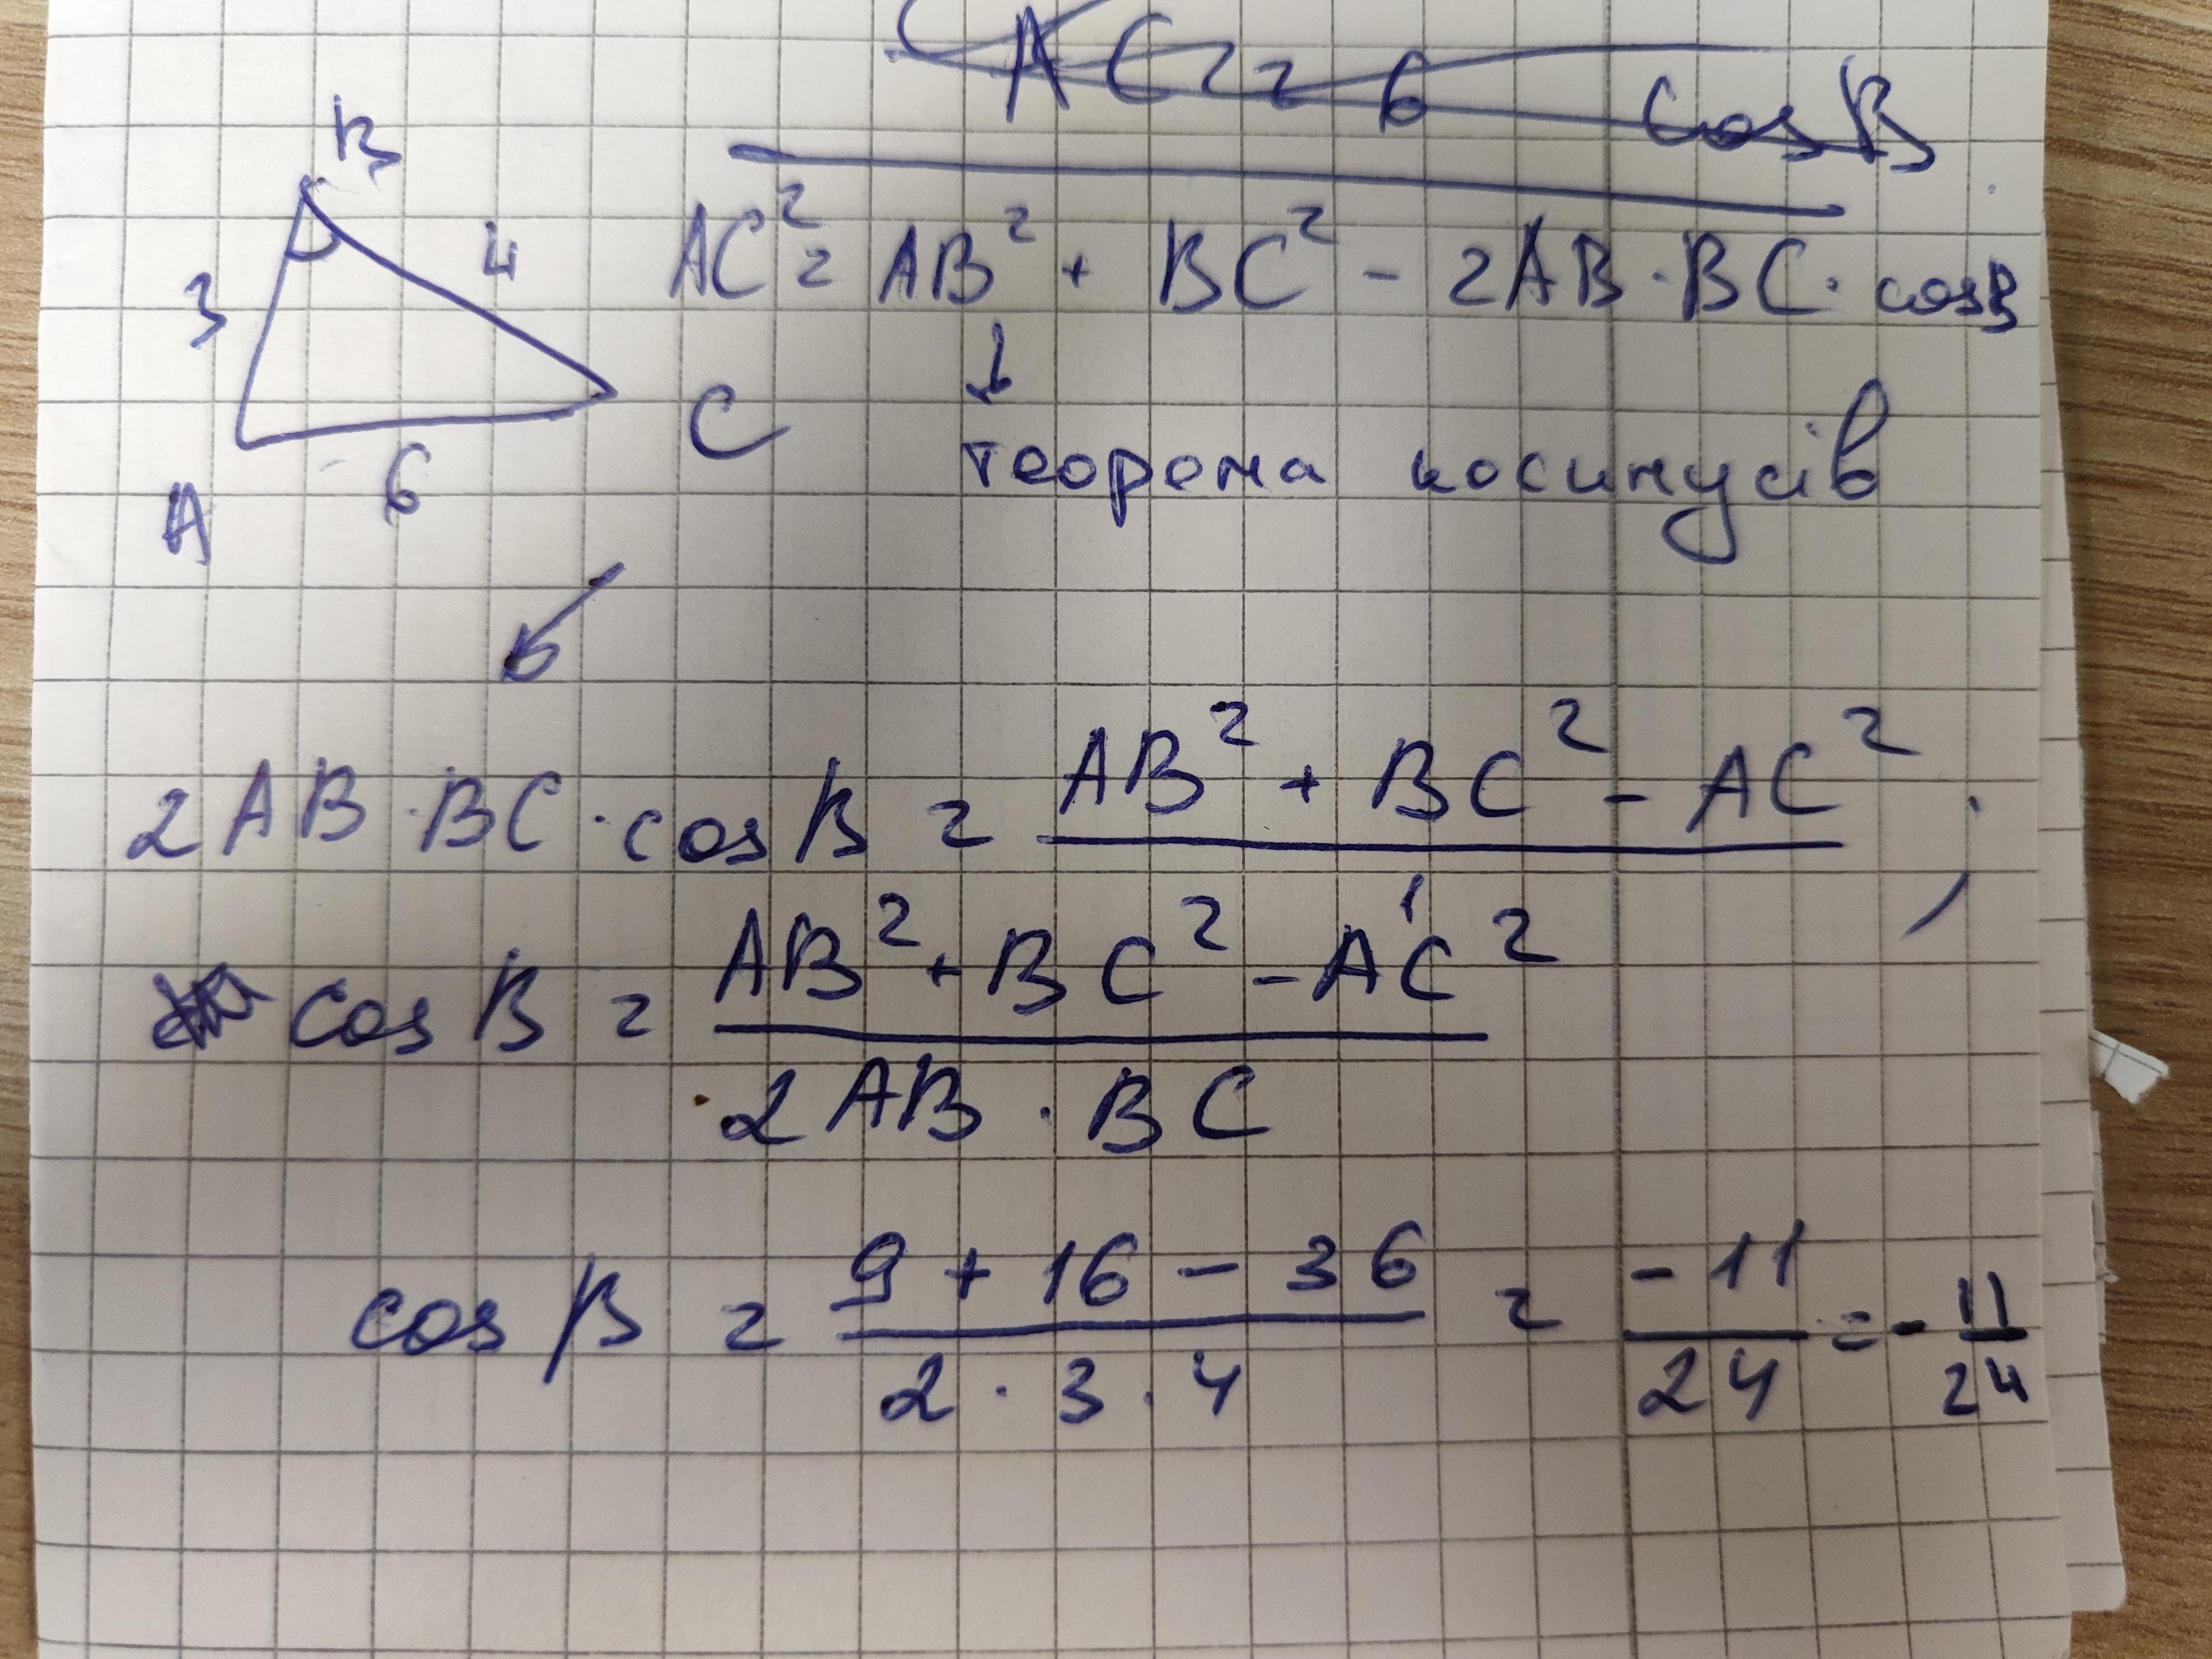 AC = 6 cos B
B
3
4
AC² = AB² + BC² - 2AB · BC · cosB
A
6
C
↓
теорема косинусів
2AB · BC · cos B = AB² + BC² - AC²
cos B = (AB² + BC² - AC²) / (2AB · BC)
cos B = (9 + 16 - 36) / (2 · 3 · 4) = -11 / 24 = - 11/24